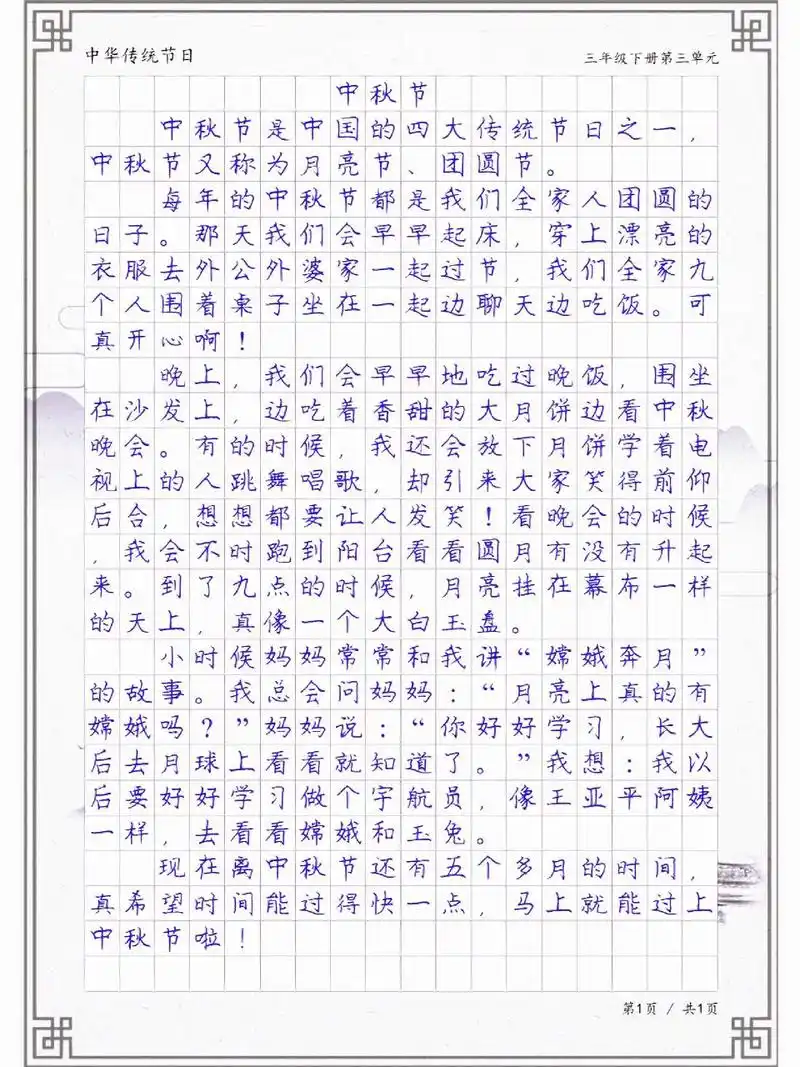 中华传统节日
三年级下册第三单元
中秋节
中秋节是中国的四大传统节日之一，
中秋节又称为月亮节、团圆节。
每年的中秋节都是我们全家人团圆的
日子。那天我们会早早起床，穿上漂亮的
衣服去外公外婆家一起过节，我们全家九
个人围着桌子坐在一起边聊天边吃饭。可
真开心啊！
晚上，我们会早早地吃过晚饭，围坐
在沙发上，边吃着香甜的大月饼边看中秋
晚会。有的时候，我还会放下月饼学着电
视上的人跳舞唱歌，却引来大家笑得前仰
后合，想想都要让人发笑！看晚会的时候
，我会不时跑到阳台看看圆月有没有升起
来。到了九点的时候，月亮挂在幕布一样
的天上，真像一个大白玉盘。
小时候妈妈常常和我讲“嫦娥奔月”
的故事。我总会问妈妈：“月亮上真的有
嫦娥吗？”妈妈说：“你好好学习，长大
后去月球上看看就知道了。”我想：我以
后要好好学习做个宇航员，像王亚平阿姨
一样，去看看嫦娥和玉兔。
现在离中秋节还有五个多月的时间，
真希望时间能过得快一点，马上就能过上
中秋节啦！
第1页 / 共1页